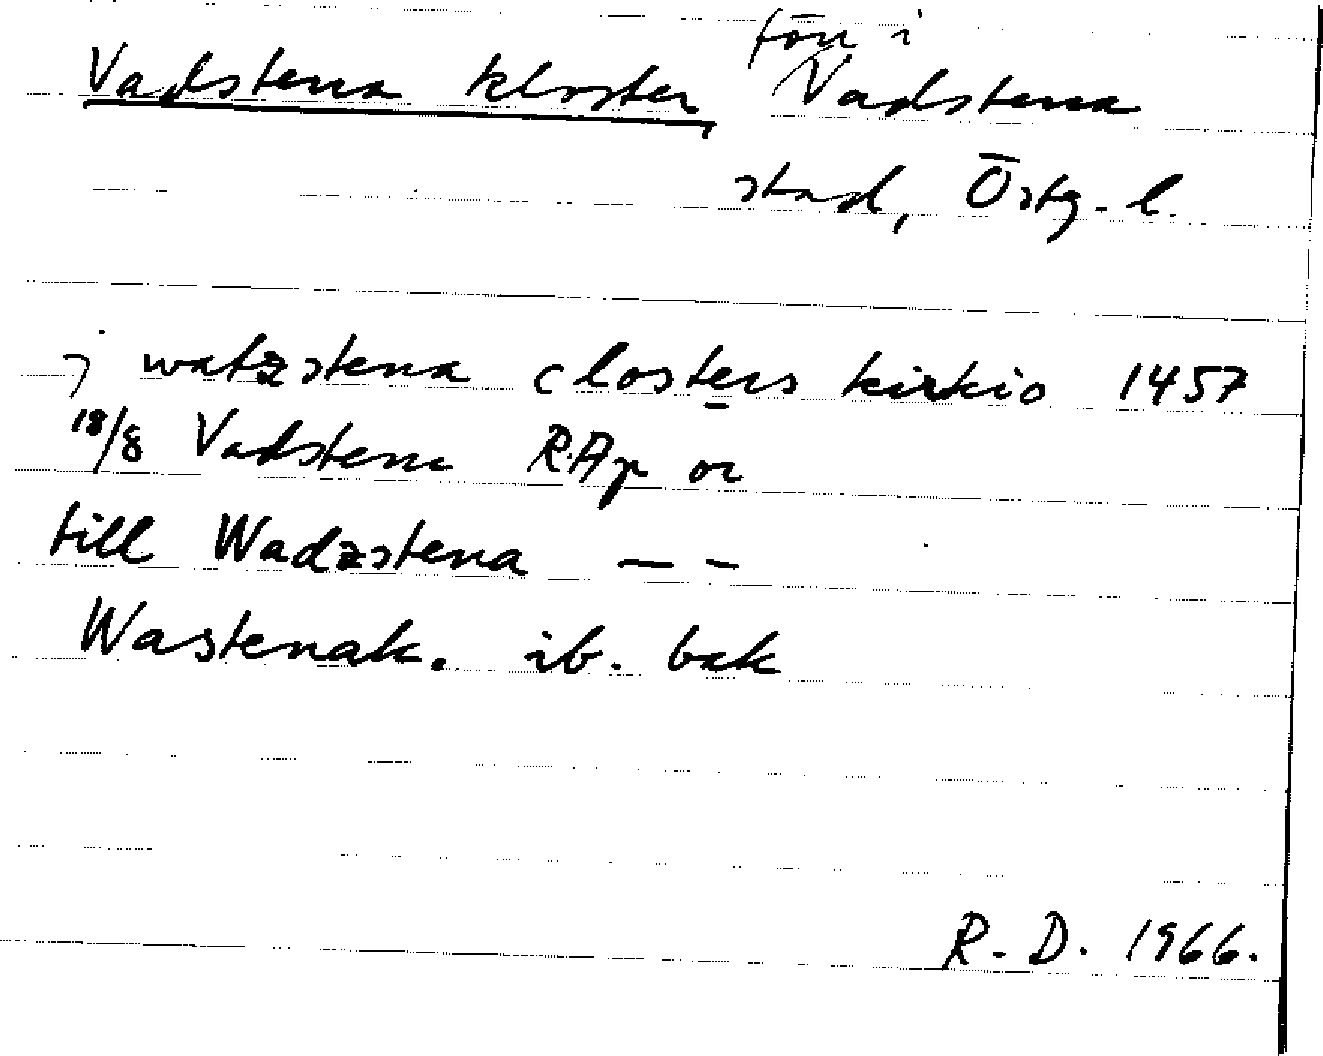 förr i
Vadstena kloster, Vadstena
stad, Östg. l.
j watzstena closters kirkio 1457
18/8 Vadstena RAp or
till Wadzstena — —
Wastenak. ib. bak
R. D. 1966.